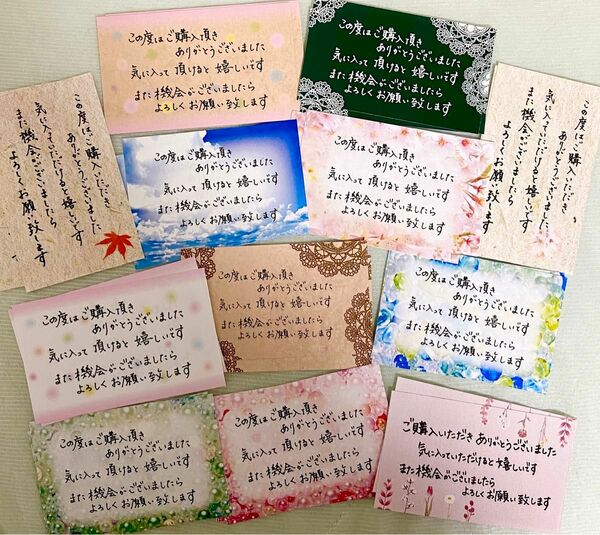 この度はご購入頂き
ありがとうございました
気に入って頂けると嬉しいです
また機会がございましたら
よろしくお願い致します
この度はご購入頂き
ありがとうございました
気に入って頂けると嬉しいです
また機会がございましたら
よろしくお願い致します
この度はご購入いただき
ありがとうございました
気に入っていただけると嬉しいです
また機会がございましたら
よろしくお願い致します
この度はご購入頂き
ありがとうございました
気に入って頂けると嬉しいです
また機会がございましたら
よろしくお願い致します
この度はご購入頂き
ありがとうございました
気に入って頂けると嬉しいです
また機会がございましたら
よろしくお願い致します
この度はご購入いただき
ありがとうございました
気に入っていただけると嬉しいです
また機会がございましたら
よろしくお願い致します
この度はご購入頂き
ありがとうございました
気に入って頂けると嬉しいです
また機会がございましたら
よろしくお願い致します
この度はご購入頂き
ありがとうございました
気に入って頂けると嬉しいです
また機会がございましたら
よろしくお願い致します
この度はご購入頂き
ありがとうございました
気に入って頂けると嬉しいです
また機会がございましたら
よろしくお願い致します
この度はご購入頂き
ありがとうございました
気に入って頂けると嬉しいです
また機会がございましたら
よろしくお願い致します
この度はご購入頂き
ありがとうございました
気に入って頂けると嬉しいです
また機会がございましたら
よろしくお願い致します
ご購入いただき ありがとうございました
気に入っていただけると嬉しいです
また機会がございましたら
よろしくお願い致します